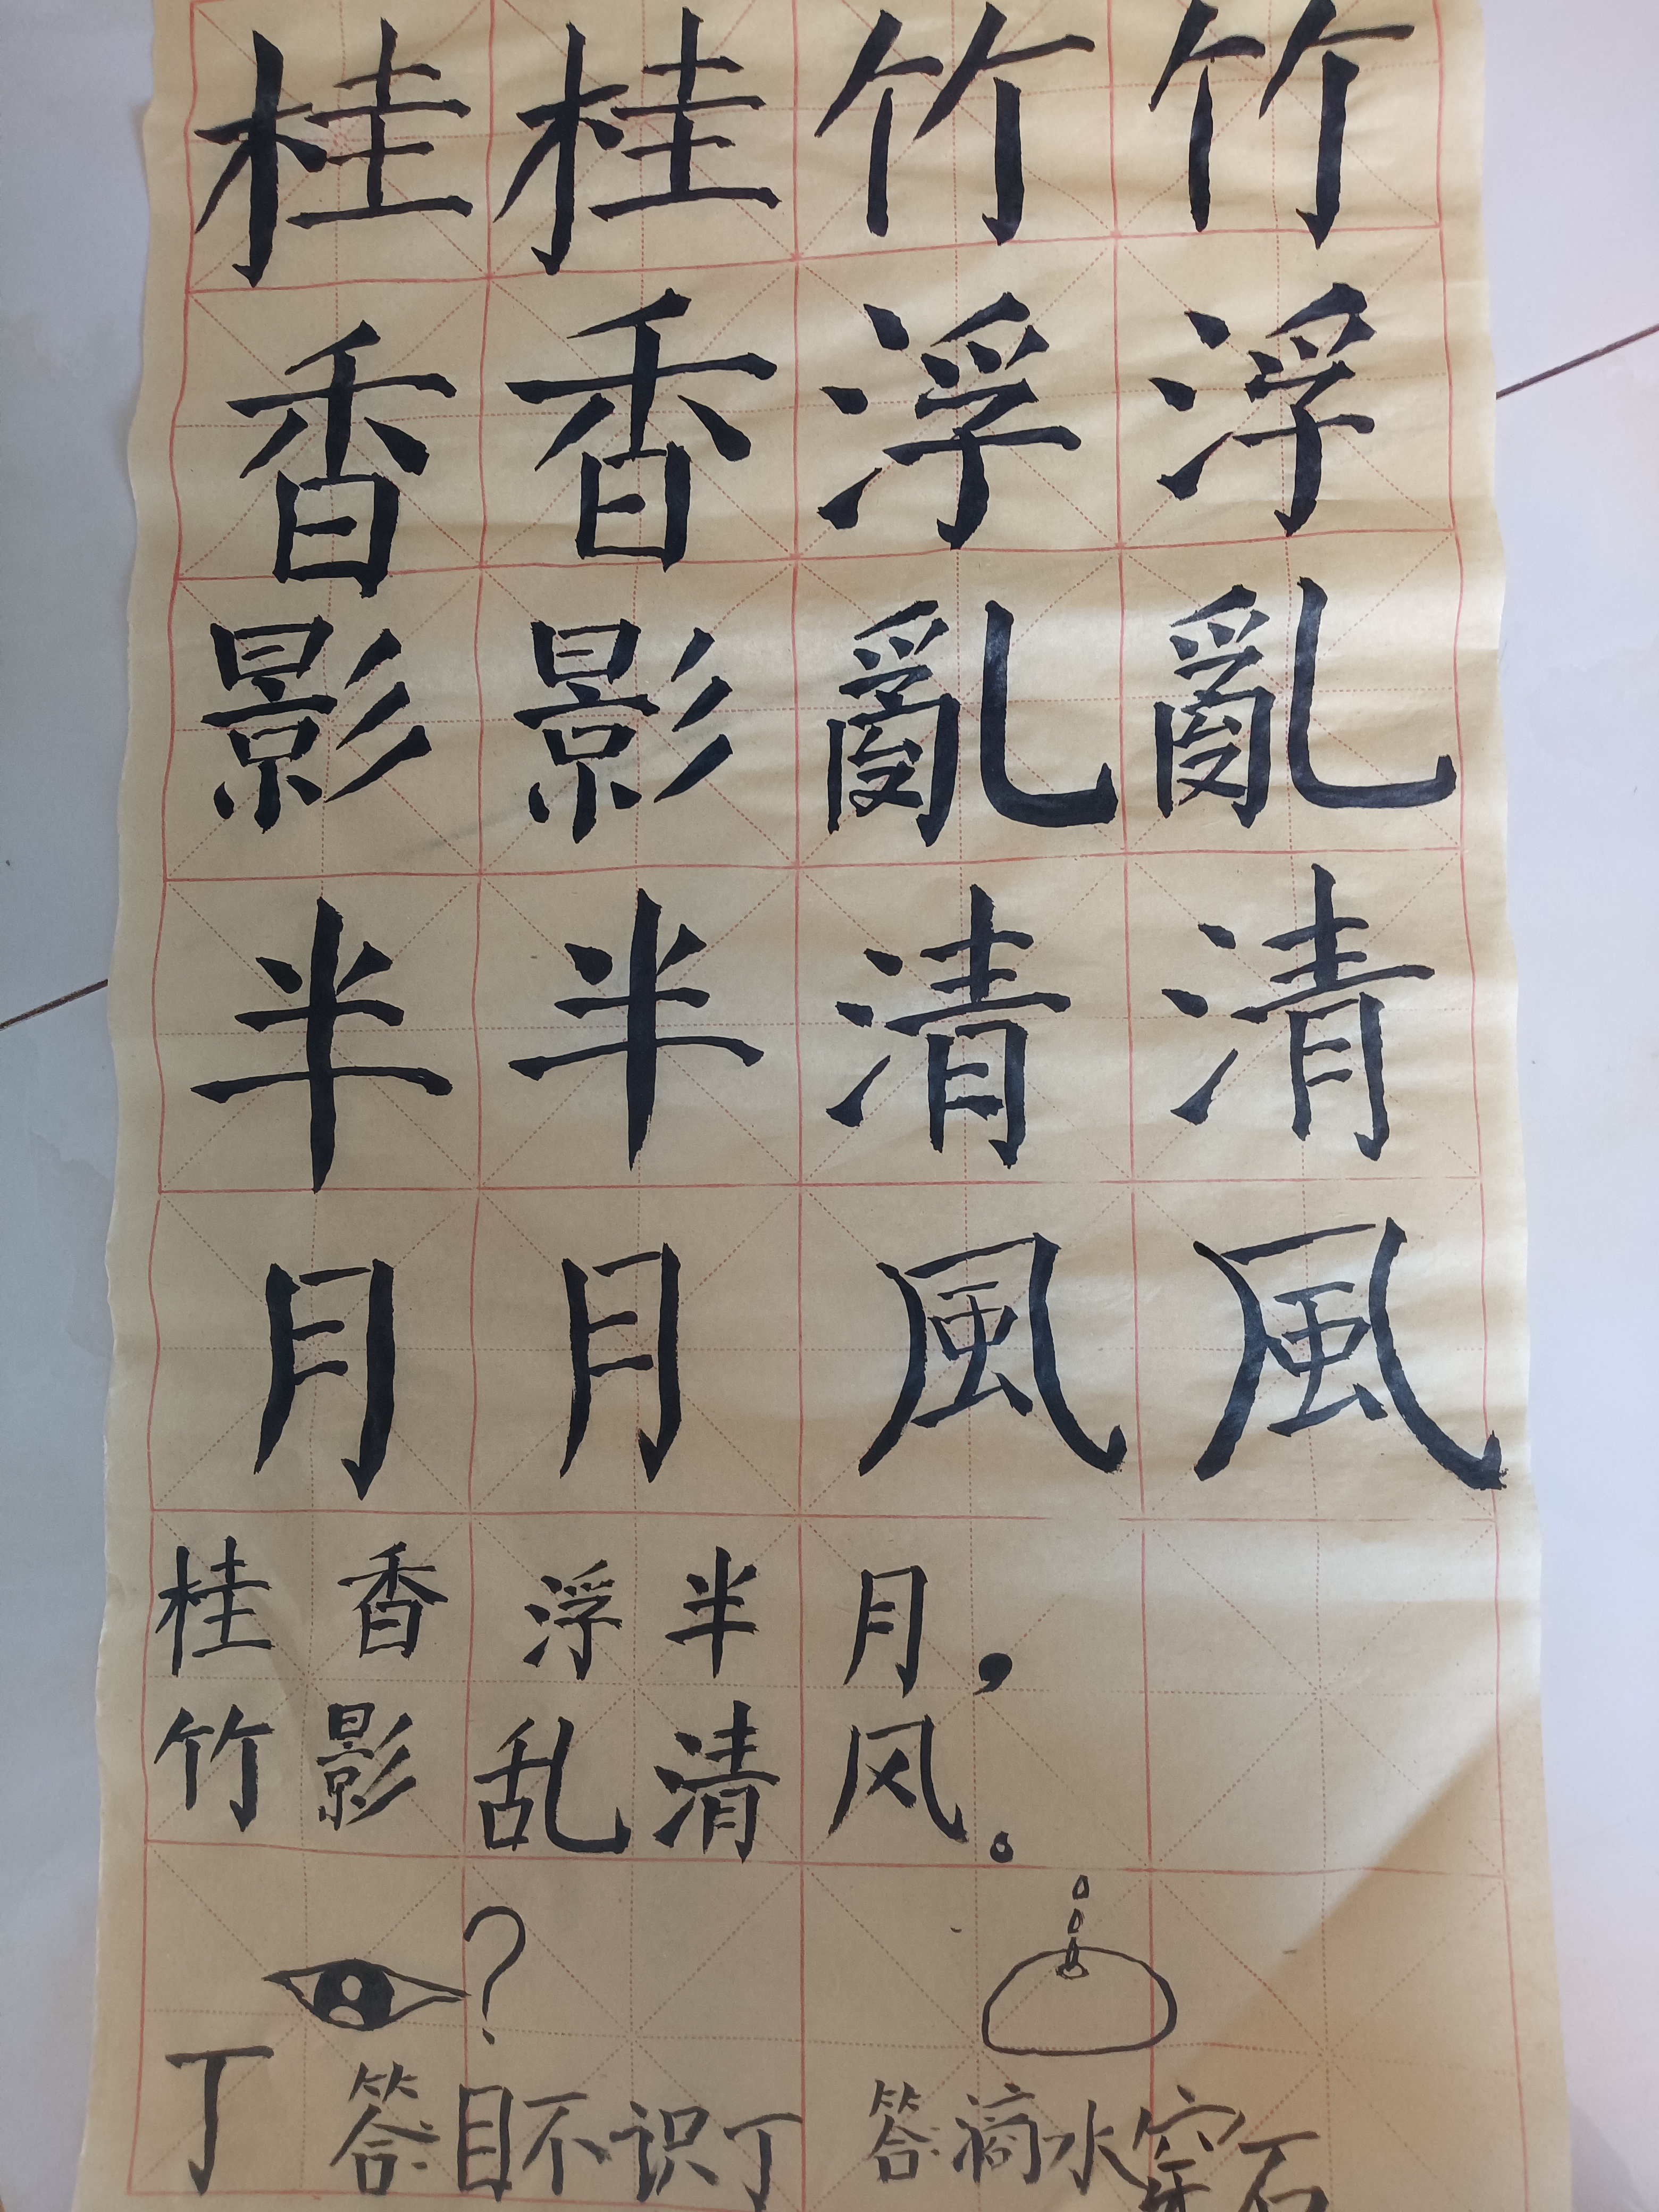 桂桂竹竹
香香浮浮
影影亂亂
半半清清
月月風風
桂香浮半月，
竹影乱清风。
?
丁
答:目不识丁
答:滴水穿石